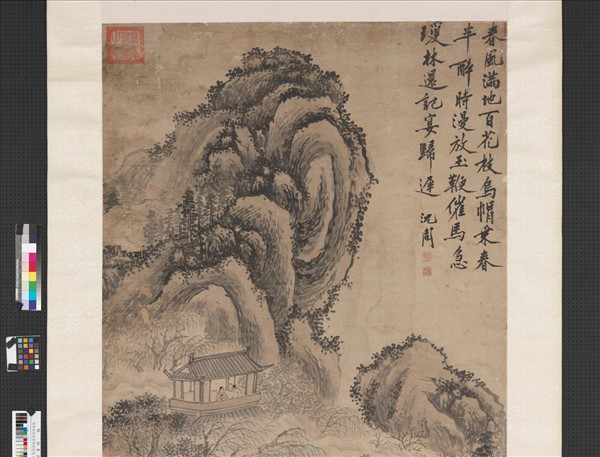 春風滿地百花枝烏帽乘春
半醉時漫放玉鞭催馬急
瓊林還記宴歸遲 沈周